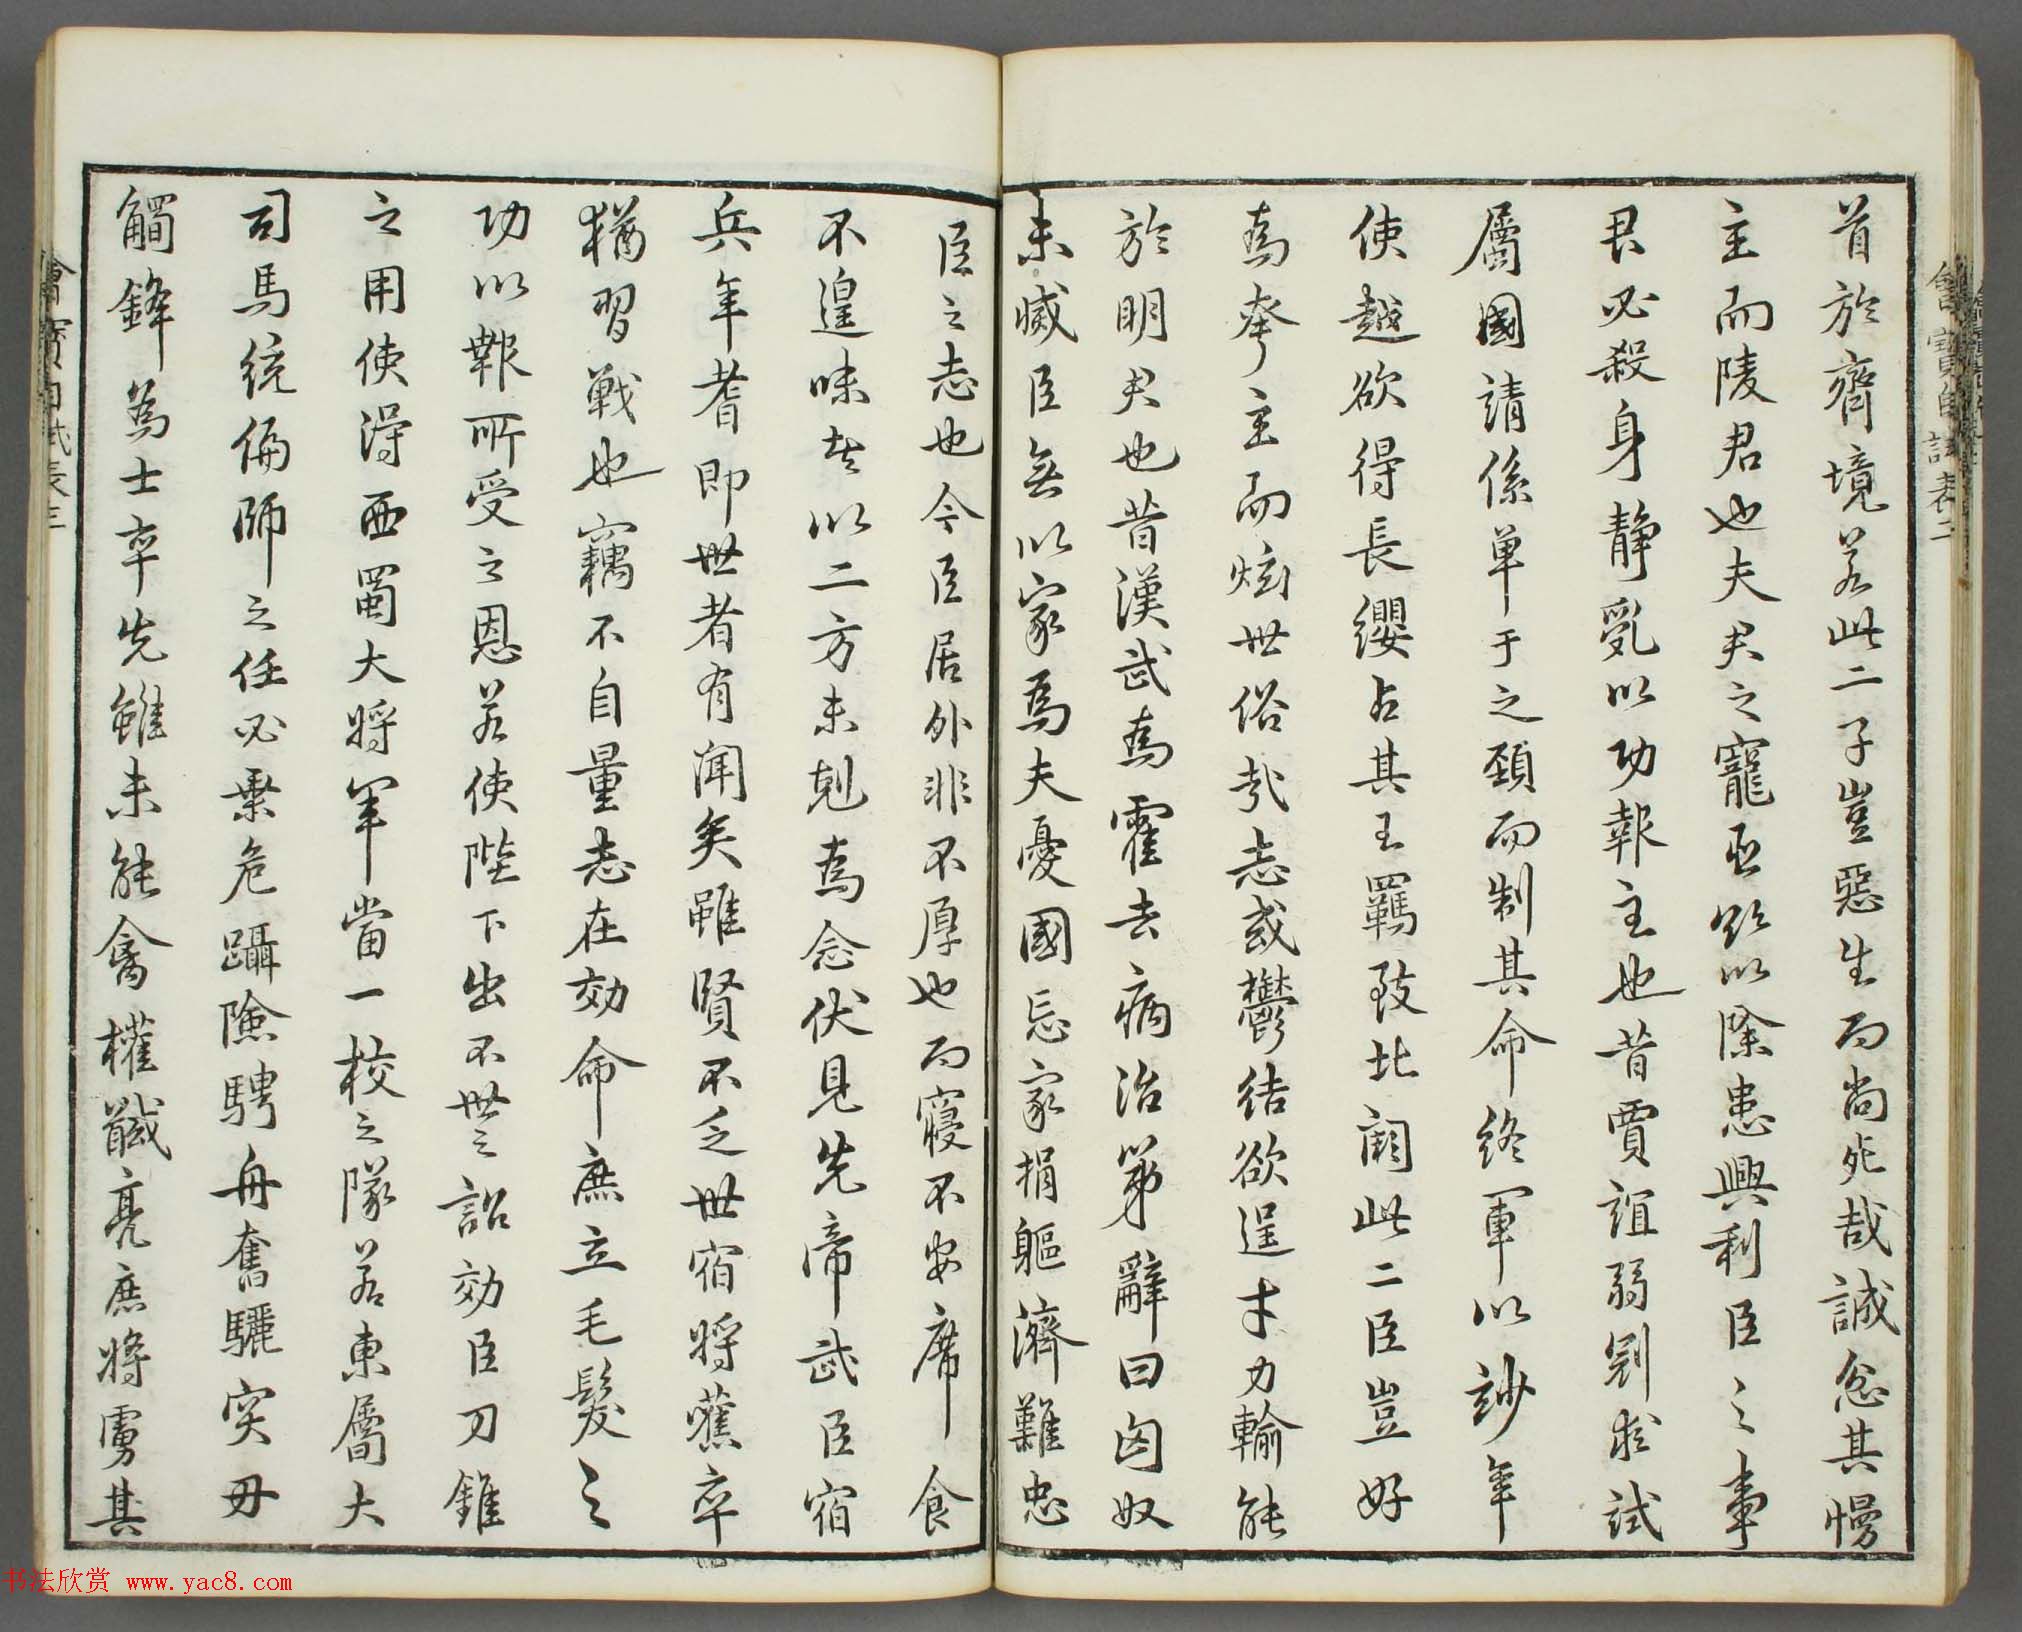 首於齊境若此二子豈惡生而尚死哉誠忿其慢
主而陵君也夫君之寵臣欲以除患興利臣之事
君必殺身靜亂以功報主也昔賈誼弱冠求試
屬國請係單于之頸而制其命終軍以妙年
使越欲得長纓占其王羈致北闕此二臣豈好
為夸主而炫世俗哉志或鬱結欲逞才力輸能
於明君也昔漢武為霍去病治第辭曰匈奴
未滅臣無以家為夫憂國忘家捐軀濟難忠
臣之志也今臣居外非不厚也而寢不安席食
不遑味者以二方未剋為念伏見先帝武臣宿
兵年耆即世者有聞矣雖賢不乏世宿將舊卒
猶習戰也竊不自量志在効命庶立毛髮之
功以報所受之恩若使陛下出不世之詔効臣刀錐
之用使得西蜀大將軍當一校之隊若東屬大
司馬統偏師之任必乘危躡險騁舟奮驪突刃
觸鋒為士卒先雖未能禽權馘亮庶將虜其
自試表二
自試表三
书法欣赏 www.yac8.com